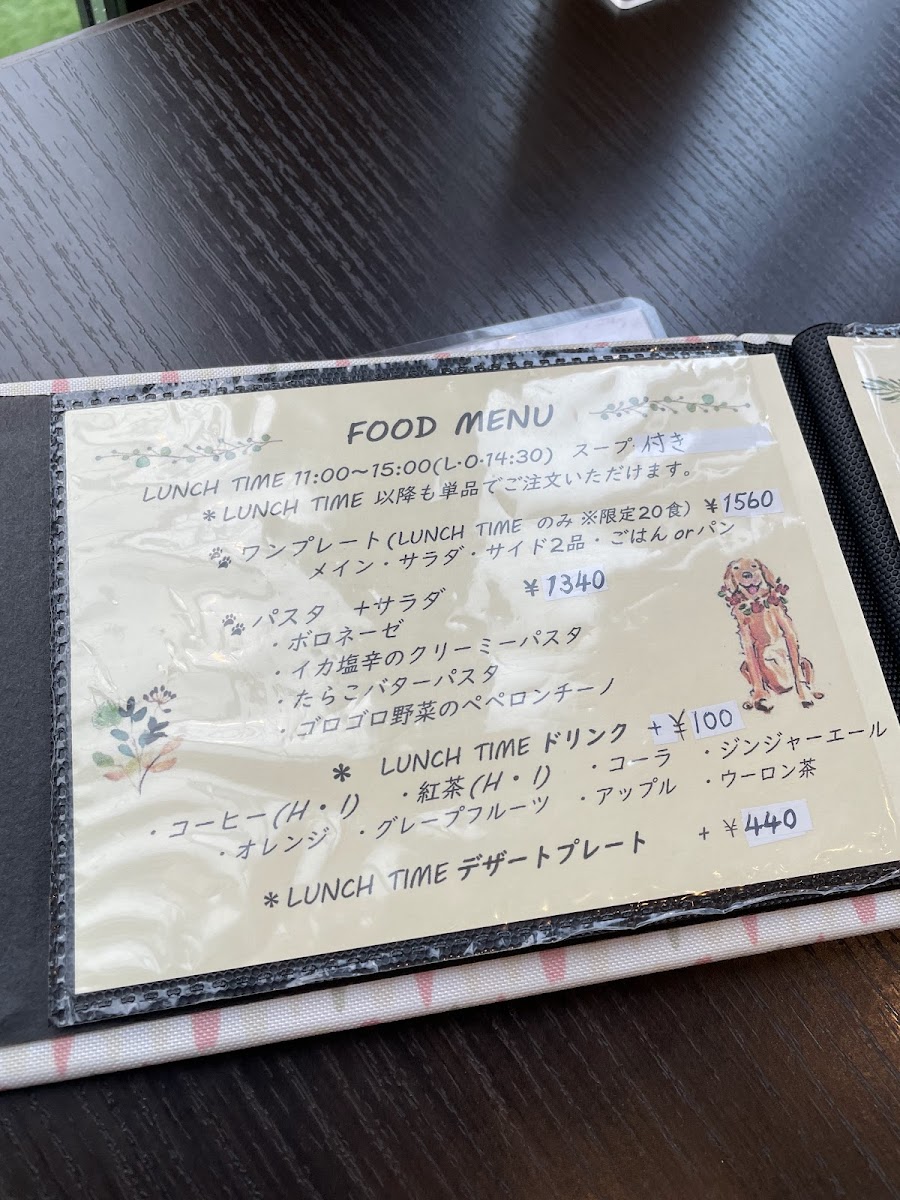 FOOD MENU
LUNCH TIME 11:00〜15:00(L・O・14:30) スープ付き
＊LUNCH TIME 以降も単品でご注文いただけます。
ワンプレート(LUNCH TIME のみ ※限定20食) ￥1560
メイン・サラダ・サイド2品・ごはん or パン
パスタ ＋サラダ ￥1340
・ボロネーゼ
・イカ塩辛のクリーミーパスタ
・たらこバターパスタ
・ゴロゴロ野菜のペペロンチーノ
＊ LUNCH TIME ドリンク +￥100
・コーヒー(H・I) ・紅茶(H・I) ・コーラ ・ジンジャーエール
・オレンジ ・グレープフルーツ ・アップル ・ウーロン茶
＊LUNCH TIME デザートプレート + ￥440